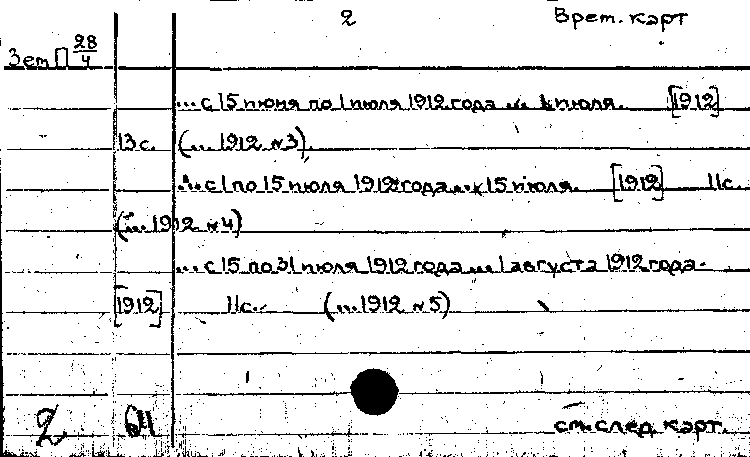 2 Врем. карт
Зем П 28/4
... с 15 июня по 1 июля 1912 года ... 1 июля. [1912]
13 с. (... 1912 № 3).
... с 1 по 15 июля 1912 года ... 15 июля. [1912] 11 с.
(... 1912 № 4)
... с 15 по 31 июля 1912 года ... 1 августа 1912 года.
[1912] 11 с. (... 1912 № 5)
2 64 см. след. карт.